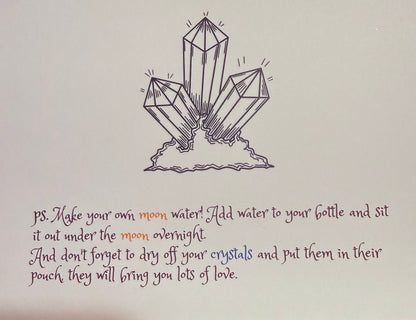 PS. Make your own moon water! Add water to your bottle and sit
it out under the moon overnight.
And don't forget to dry off your crystals and put them in their
pouch, they will bring you lots of love.